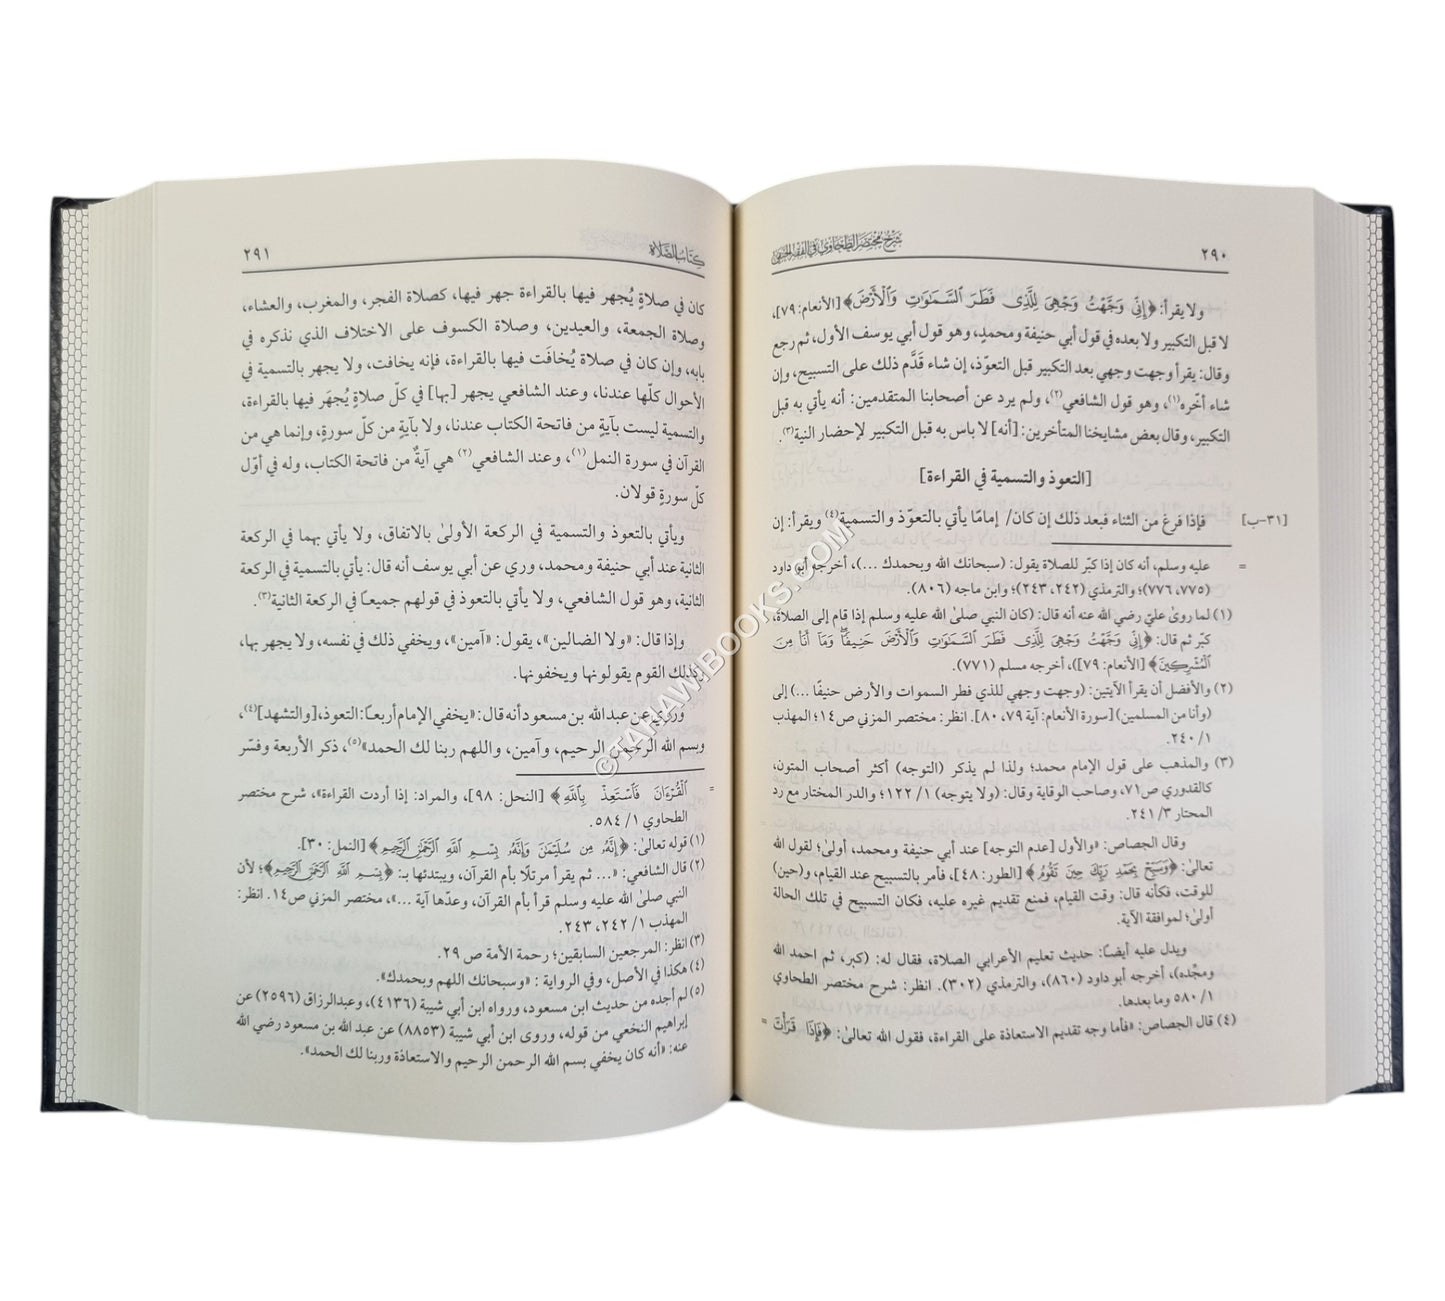 ٢٩٠
شرح مختصر الطحاوي في الفقه الحنفي
ولا يقرأ: ﴿إِنِّي وَجَّهْتُ وَجْهِيَ لِلَّذِي فَطَرَ السَّمَوَاتِ وَالْأَرْضَ﴾ [الأنعام: ٧٩]،
لا قبل التكبير ولا بعده في قول أبي حنيفة ومحمدٍ، وهو قول أبي يوسف الأول، ثم رجع
وقال: يقرأ وجهت وجهي بعد التكبير قبل التعوّذ، إن شاء قَدَّم ذلك على التسبيح، وإن
شاء أخّره(١)، وهو قول الشافعي(٢)، ولم يرد عن أصحابنا المتقدمين: أنه يأتي به قبل
التكبير، وقال بعض مشايخنا المتأخرين: [أنه] لا باس به قبل التكبير لإحضار النية(٣).
[التعوذ والتسمية في القراءة]
[٣١-ب] فإذا فرغ من الثناء فبعد ذلك إن كان/ إمامًا يأتي بالتعوّذ والتسمية(٤) ويقرأ: إن
= عليه وسلم، أنه كان إذا كبّر للصلاة يقول: (سبحانك الله وبحمدك ...)، أخرجه أبو داود
(٧٧٥، ٧٧٦)؛ والترمذي (٢٤٢، ٢٤٣)؛ وابن ماجه (٨٠٦).
(١) لما روىٰ عليّ رضي الله عنه أنه قال: (كان النبي صلىٰ الله عليه وسلم إذا قام إلى الصلاة،
كبّر ثم قال: ﴿إِنِّي وَجَّهْتُ وَجْهِيَ لِلَّذِي فَطَرَ السَّمَوَاتِ وَالْأَرْضَ حَنِيفًا وَمَا أَنَا مِنَ
الْمُشْرِكِينَ﴾ [الأنعام: ٧٩])، أخرجه مسلم (٧٧١).
(٢) والأفضل أن يقرأ الآيتين: (وجهت وجهي للذي فطر السموات والأرض حنيفًا ...) إلى
(وأنا من المسلمين) [سورة الأنعام: آية ٧٩، ٨٠]. انظر: مختصر المزني ص١٤؛ المهذب
١/ ٢٤٠.
(٣) والمذهب على قول الإمام محمد؛ ولذا لم يذكر (التوجه) أكثر أصحاب المتون،
كالقدوري ص٧١، وصاحب الوقاية وقال: (ولا يتوجه) ١/ ١٢٢؛ والدر المختار مع رد
المحتار ٣/ ٢٤١.
وقال الجصاص: «والأول [عدم التوجه] عند أبي حنيفة ومحمد، أولىٰ؛ لقول الله
تعالىٰ: ﴿وَسَبِّحْ بِحَمْدِ رَبِّكَ حِينَ تَقُومُ﴾ [الطور: ٤٨]، فأمر بالتسبيح عند القيام، و(حين)
للوقت، فكأنه قال: وقت القيام، فمنع تقديم غيره عليه، فكان التسبيح في تلك الحالة
أولىٰ؛ لموافقة الآية.
ويدل عليه أيضًا: حديث تعليم الأعرابي الصلاة، فقال له: (كبر، ثم احمد الله
ومجّده)، أخرجه أبو داود (٨٦٠)، والترمذي (٣٠٢). انظر: شرح مختصر الطحاوي
١/ ٥٨٠ وما بعدها.
(٤) قال الجصاص: «فأما وجه تقديم الاستعاذة على القراءة، فقول الله تعالىٰ: ﴿فَإِذَا قَرَأْتَ =
كتاب الصلاة
٢٩١
كان في صلاةٍ يُجهر فيها بالقراءة جهر فيها، كصلاة الفجر، والمغرب، والعشاء،
وصلاة الجمعة، والعيدين، وصلاة الكسوف على الاختلاف الذي نذكره في
بابه، وإن كان في صلاة يُخافَت فيها بالقراءة، فإنه يخافت، ولا يجهر بالتسمية في
الأحوال كلّها عندنا، وعند الشافعي يجهر [بها] في كلّ صلاةٍ يُجهَر فيها بالقراءة،
والتسمية ليست بآيةٍ من فاتحة الكتاب عندنا، ولا بآيةٍ من كلّ سورةٍ، وإنما هي من
القرآن في سورة النمل(١)، وعند الشافعي(٢) هي آيةٌ من فاتحة الكتاب، وله في أوّل
كلّ سورةٍ قولان.
ويأتي بالتعوذ والتسمية في الركعة الأولىٰ بالاتفاق، ولا يأتي بهما في الركعة
الثانية عند أبي حنيفة ومحمد، وري عن أبي يوسف أنه قال: يأتي بالتسمية في الركعة
الثانية، وهو قول الشافعي، ولا يأتي بالتعوذ في قولهم جميعًا في الركعة الثانية(٣).
وإذا قال: «ولا الضالين»، يقول: «آمين»، ويخفي ذلك في نفسه، ولا يجهر بها،
وكذلك القوم يقولونها ويخفونها.
وروي عن عبد الله بن مسعود أنه قال: «يخفي الإمام أربعًا: التعوذ، [والتشهد](٤)،
وبسم الله الرحمن الرحيم، وآمين، واللهم ربنا لك الحمد»(٥)، ذكر الأربعة وفسّر
= الْقُرْءَانَ فَاسْتَعِذْ بِاللَّهِ﴾ [النحل: ٩٨]، والمراد: إذا أردت القراءة»، شرح مختصر
الطحاوي ١/ ٥٨٤.
(١) قوله تعالىٰ: ﴿إِنَّهُ مِن سُلَيْمَانَ وَإِنَّهُ بِسْمِ اللَّهِ الرَّحْمَٰنِ الرَّحِيمِ﴾ [النمل: ٣٠].
(٢) قال الشافعي: «... ثم يقرأ مرتلًا بأم القرآن، ويبتدئها بـ: ﴿بِسْمِ اللَّهِ الرَّحْمَٰنِ الرَّحِيمِ﴾؛ لأن
النبي صلىٰ الله عليه وسلم قرأ بأم القرآن، وعدّها آية ...»، مختصر المزني ص١٤. انظر:
المهذب ١/ ٢٤٢، ٢٤٣.
(٣) انظر: المرجعين السابقين؛ رحمة الأمة ص ٢٩.
(٤) هكذا في الأصل، وفي الرواية : «وسبحانك اللهم وبحمدك».
(٥) لم أجده من حديث ابن مسعود، ورواه ابن أبي شيبة (٤١٣٦)، وعبدالرزاق (٢٥٩٦) عن
إبراهيم النخعي من قوله، وروى ابن أبي شيبة (٨٨٥٣) عن عبد الله بن مسعود رضي الله
عنه: «أنه كان يخفي بسم الله الرحمن الرحيم والاستعاذة وربنا لك الحمد».
© TAHAWIBOOKS.COM